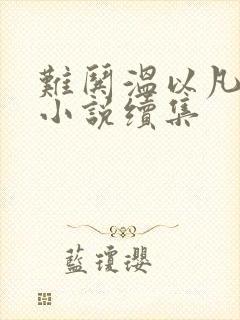 難鬨溫以凡
小說續集
藍瓊瓔